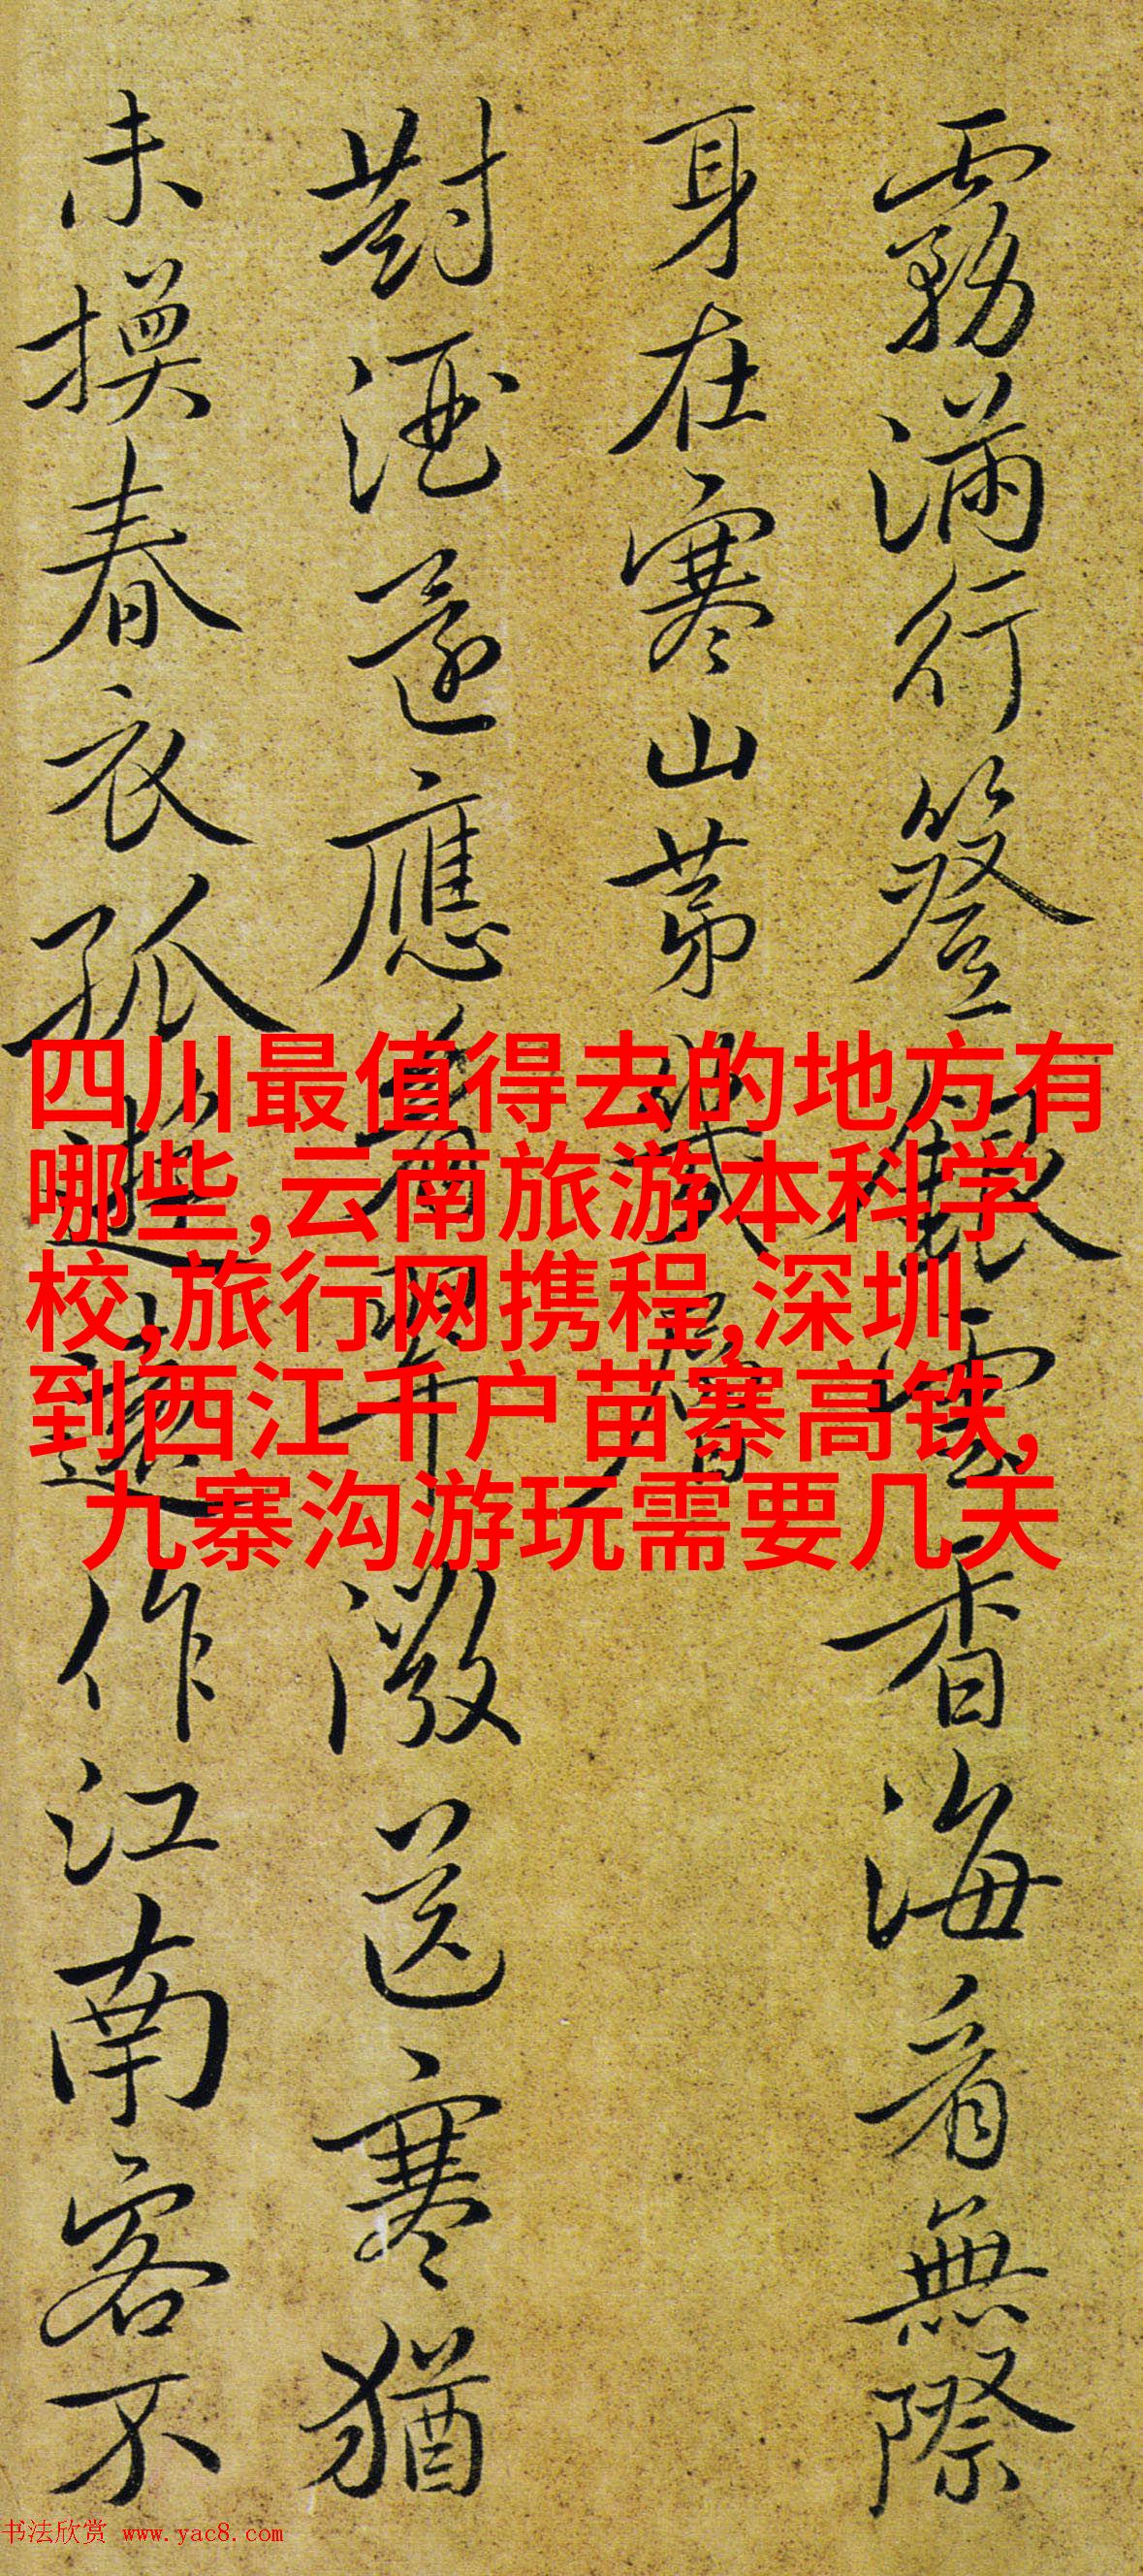 霧滿行簦雲香海看無際
身在寒山苐幾層
對酒還應看送寒猶
未換春衣孤作江南客不
四川最值得去的地方有
哪些,云南旅游本科学
校,旅行网携程,深圳
到西江千户苗寨高铁,
九寨沟游玩需要几天
书法欣赏 www.yac8.com